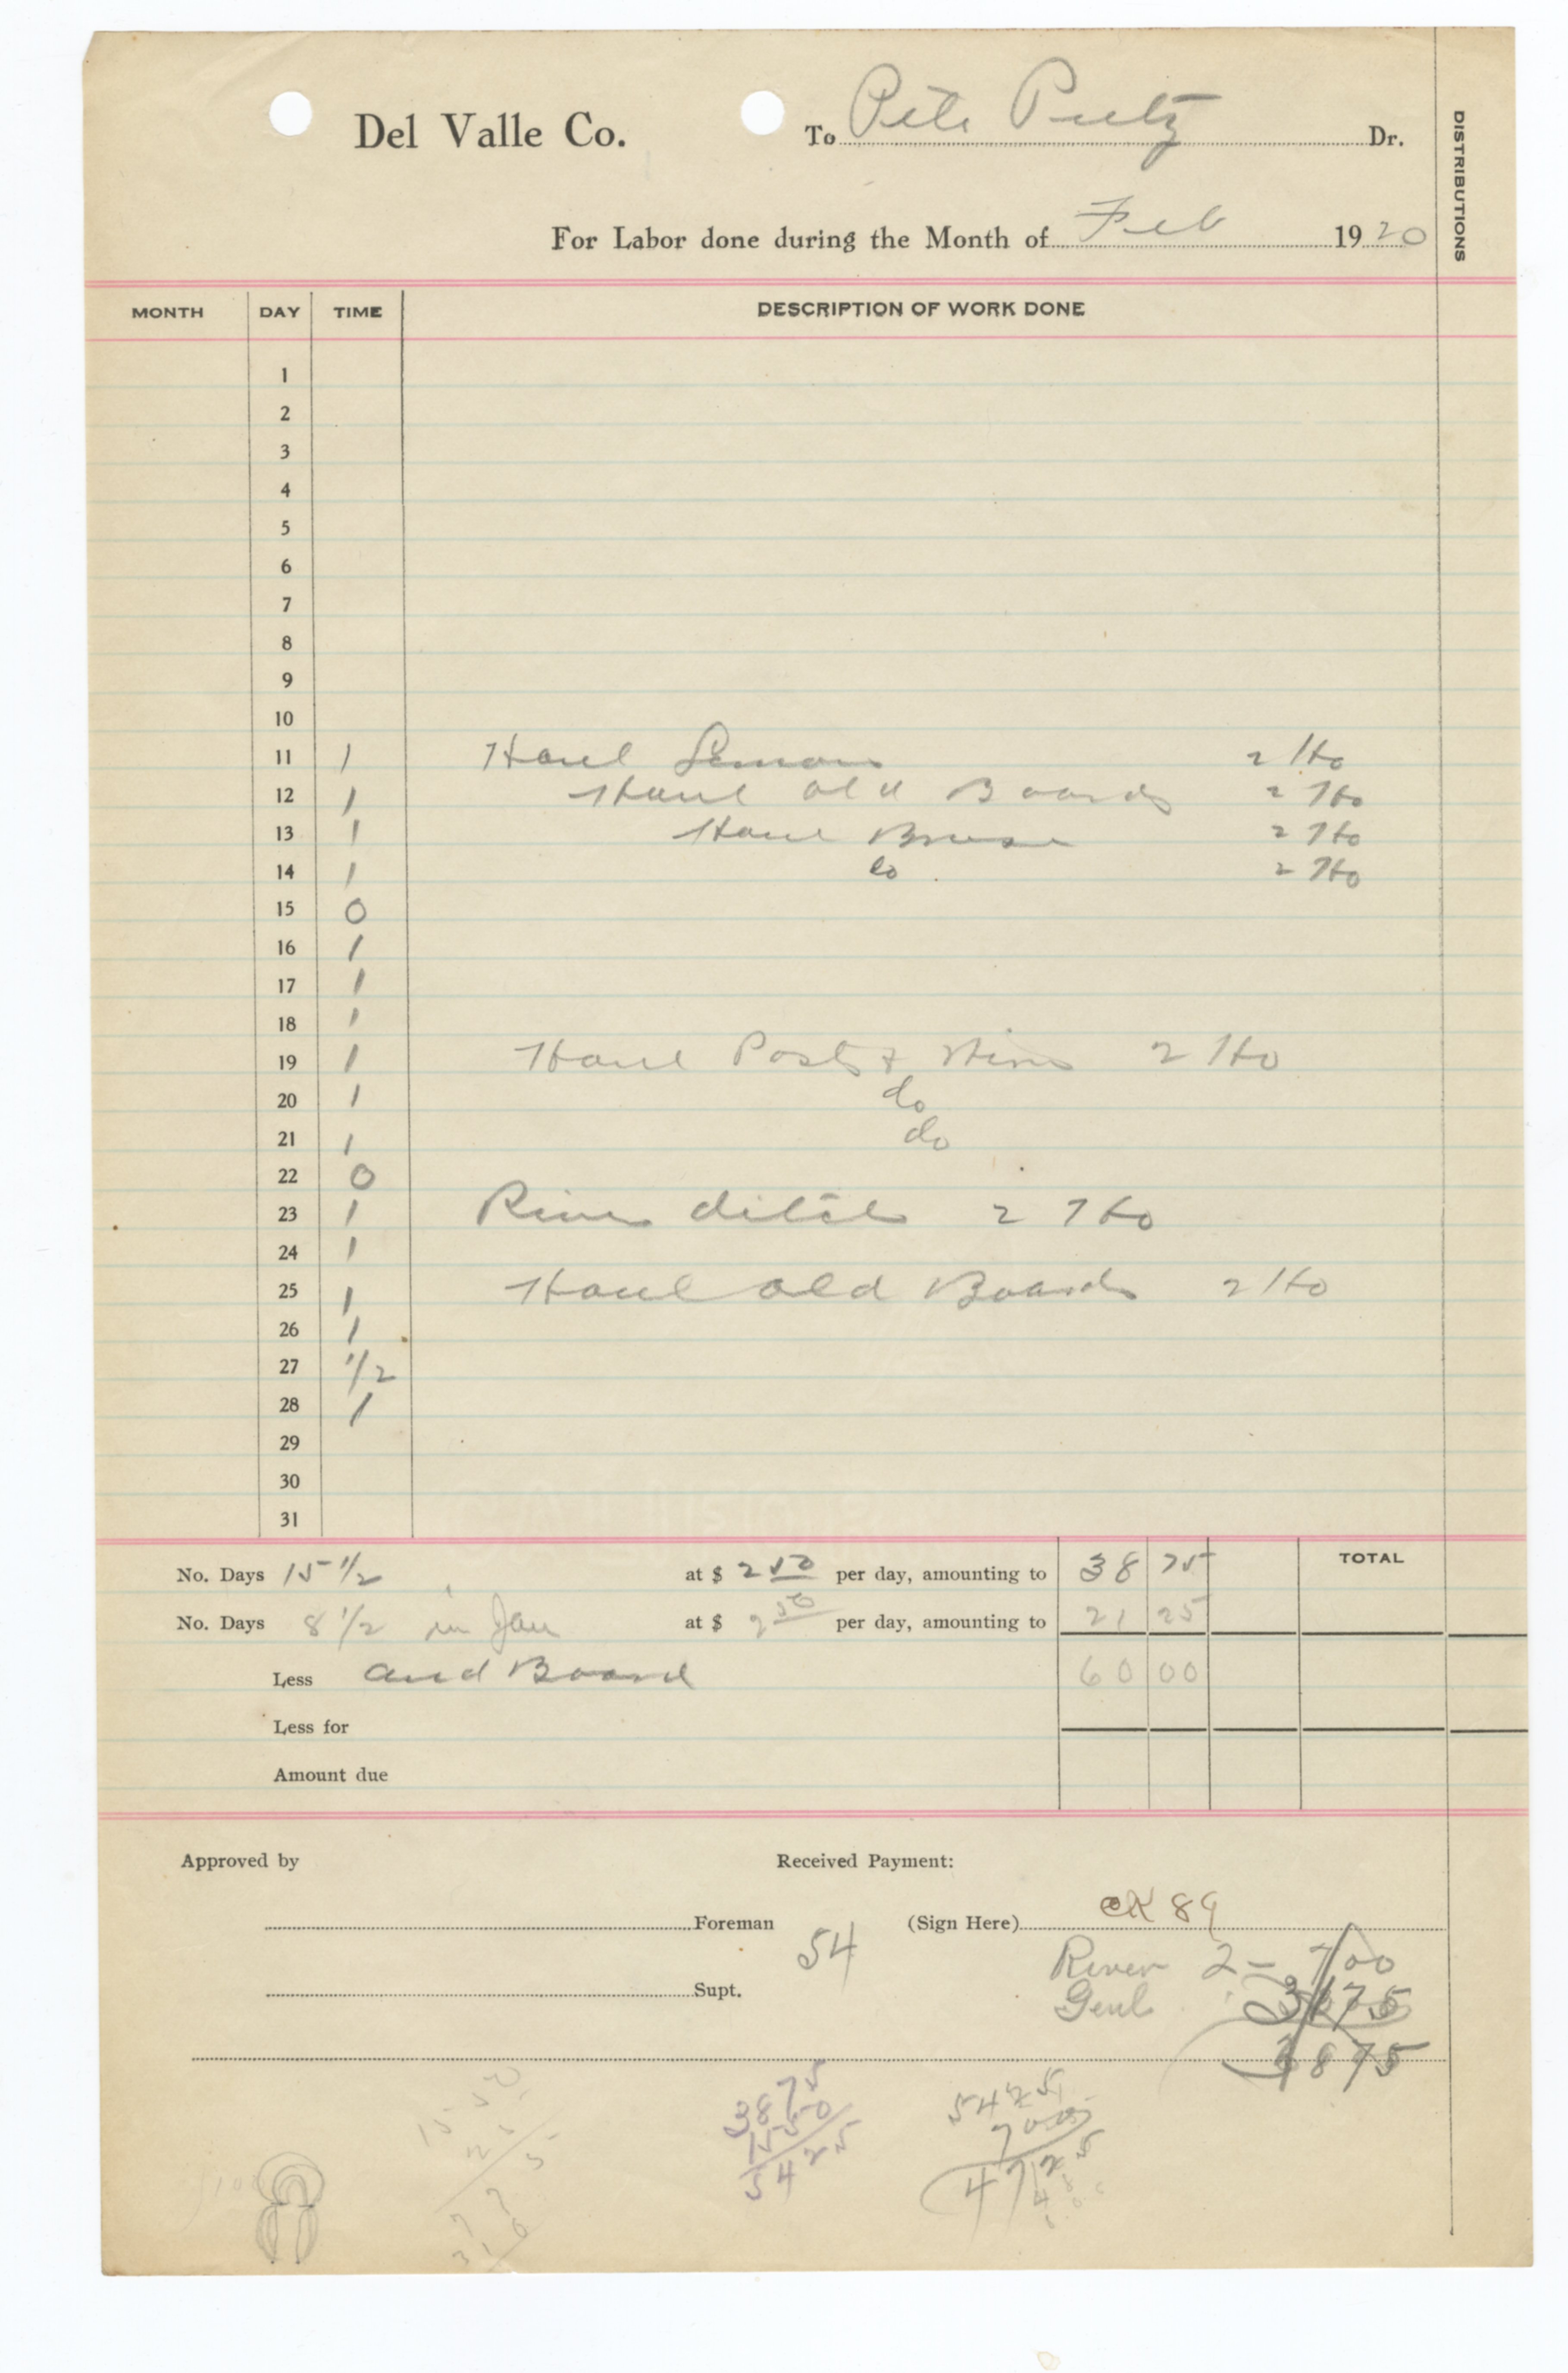 Del Valle Co. To Pete Putz Dr.
DISTRIBUTIONS
For Labor done during the Month of Feb 1920
MONTH DAY TIME DESCRIPTION OF WORK DONE
1
2
3
4
5
6
7
8
9
10
11 1 Haul Lemons 2 Ho
12 1 Haul old Boards 2 Ho
13 1 Haul 2 Ho
14 1 do 2 Ho
15 0
16 1
17 1
18 1
19 1 Haul Posts & 2 Ho
20 1 do
21 1 do
22 0
23 1 River ditch 2 Ho
24 1
25 1 Haul old Boards 2 Ho
26 1
27 1/2
28 1
29
30
31
No. Days 15 1/2 at $ 2 50 per day, amounting to 38 75 TOTAL
No. Days 8 1/2 in Jan at $ 2 50 per day, amounting to 21 25
Less and Board 60 00
Less for
Amount due
Approved by Received Payment:
Foreman (Sign Here) CK 89
54
River 2 – 7 00
Supt.
Genl 3175
3875
3875
1550
5425
5425
700
4725